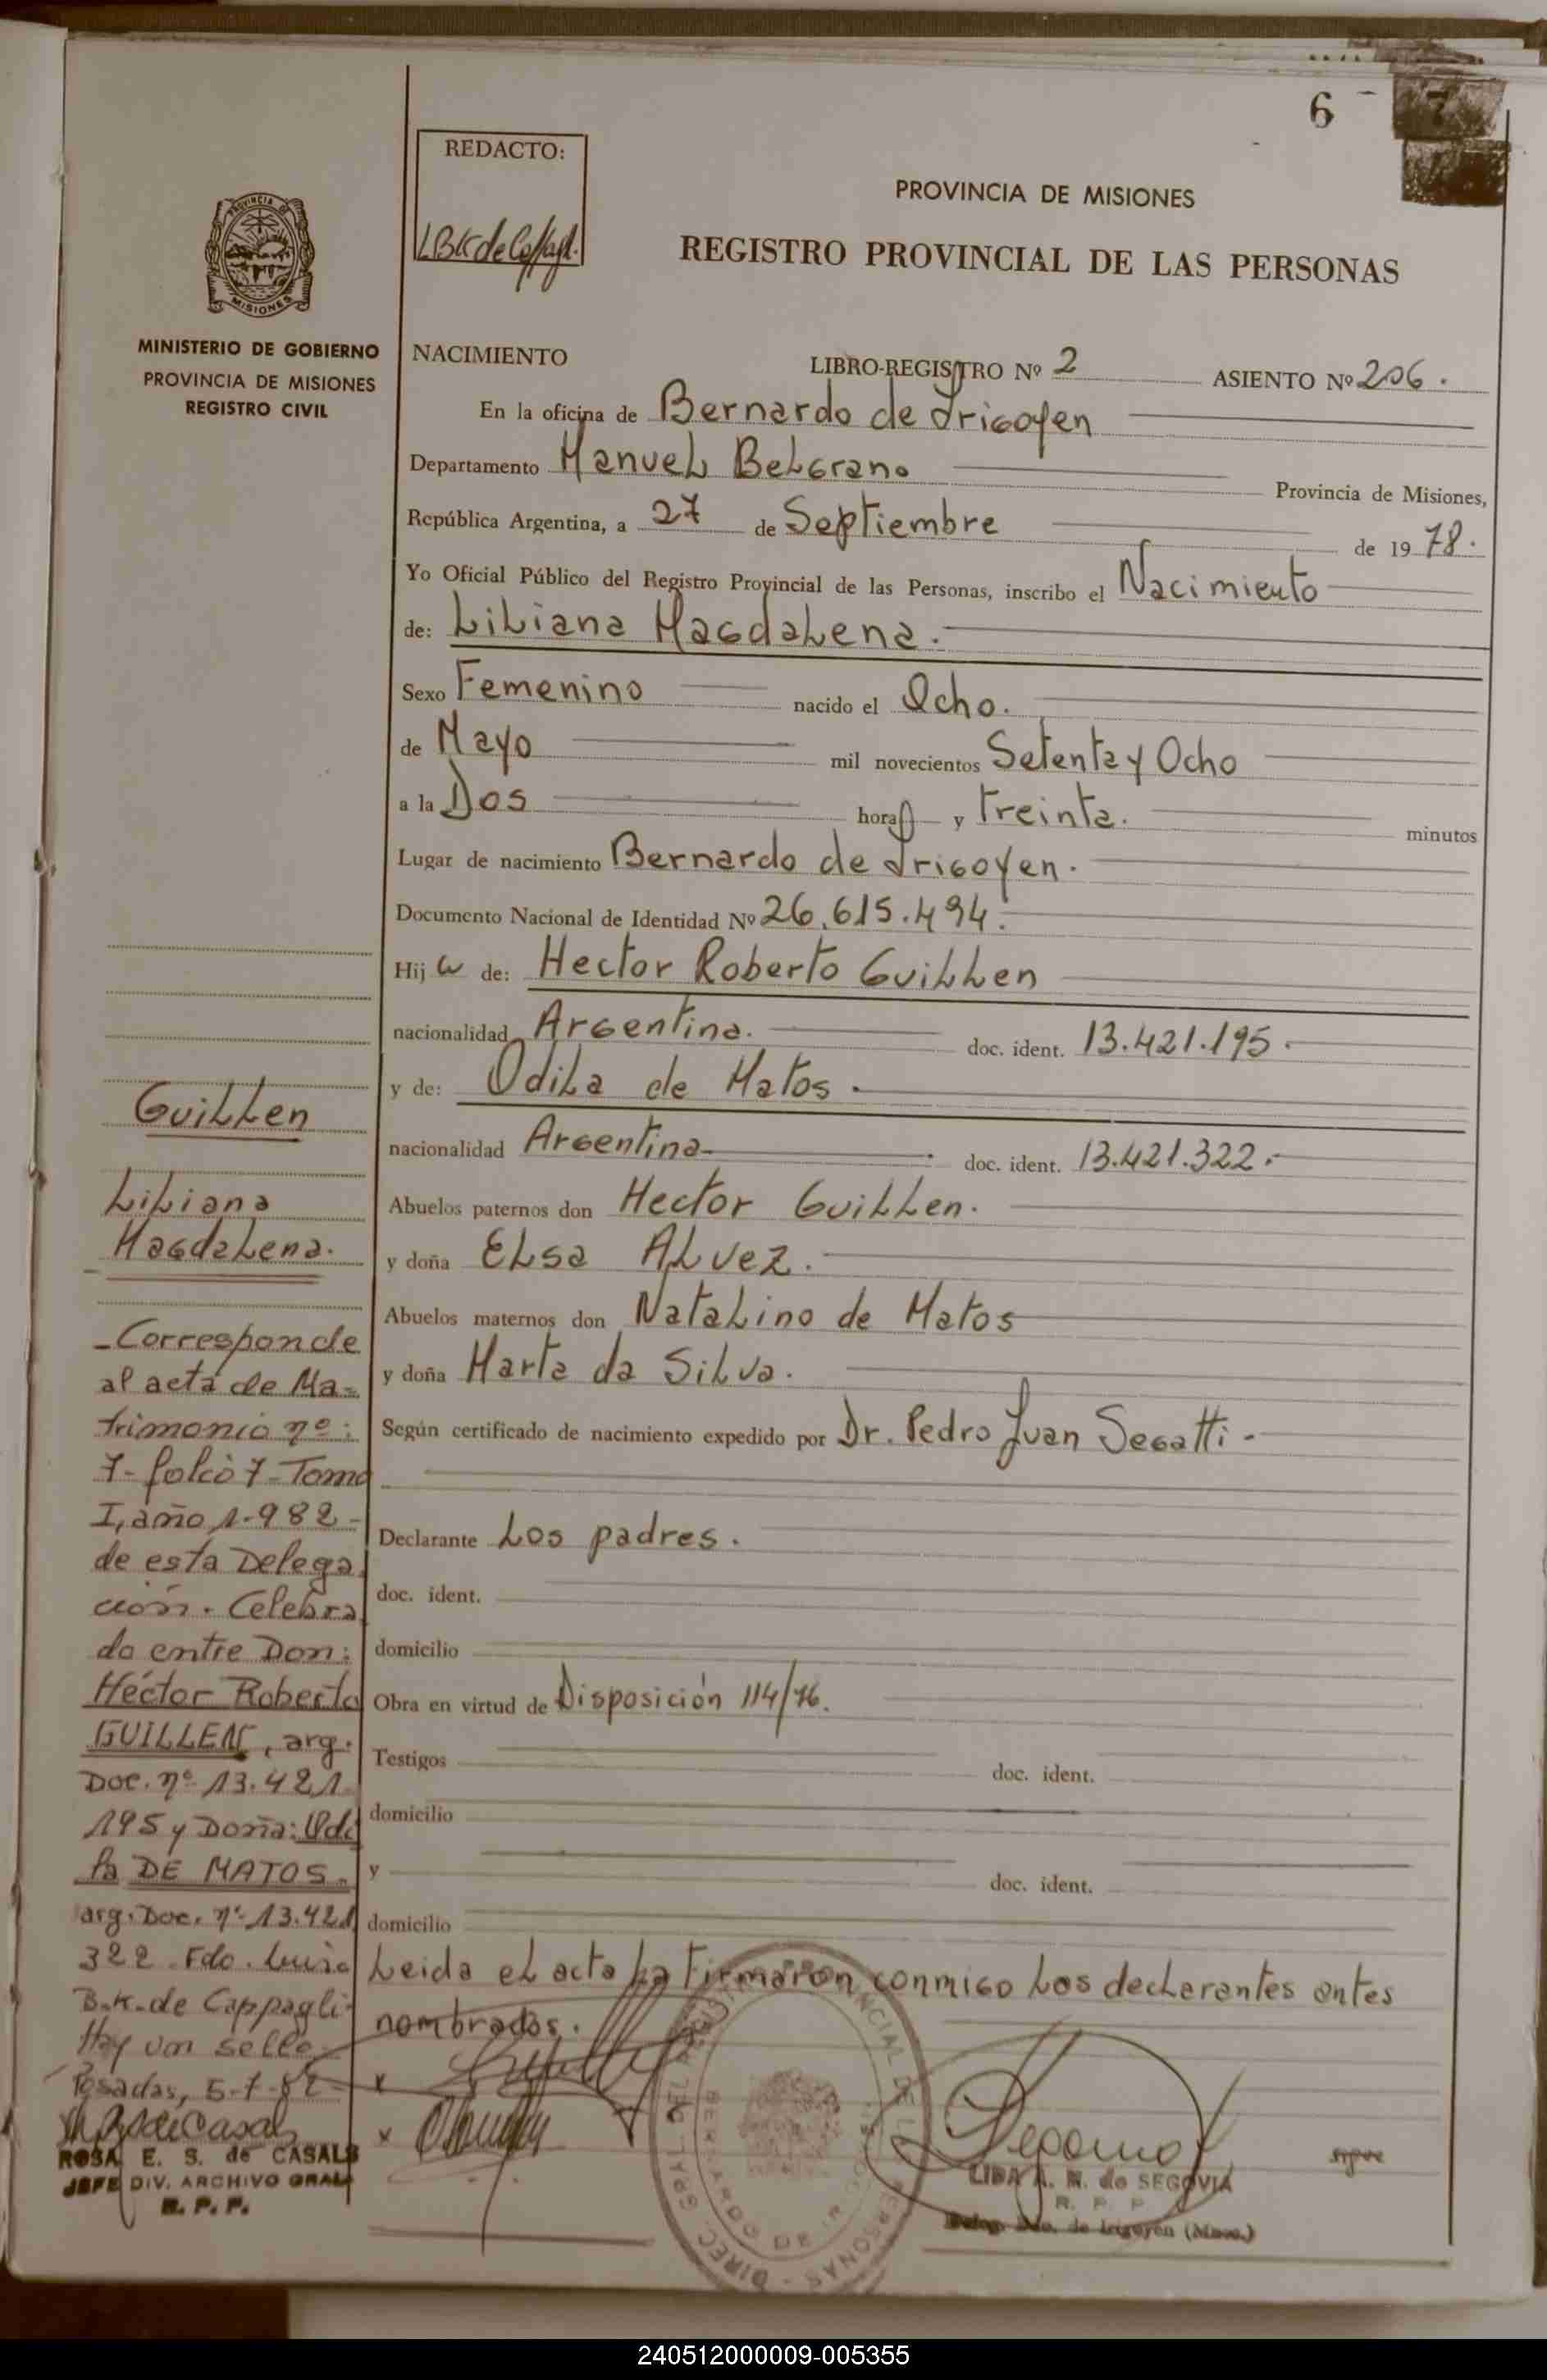 6 - 7
REDACTO:
PROVINCIA DE MISIONES
REGISTRO PROVINCIAL DE LAS PERSONAS
PROVINCIA DE
MISIONES
MINISTERIO DE GOBIERNO
PROVINCIA DE MISIONES
REGISTRO CIVIL
NACIMIENTO LIBRO-REGISTRO Nº 2 ASIENTO Nº 206.
En la oficina de Bernardo de Irigoyen
Departamento Manuel Belgrano Provincia de Misiones,
República Argentina, a 27 de Septiembre de 1978.
Yo Oficial Público del Registro Provincial de las Personas, inscribo el Nacimiento
de: Liliana Magdalena.
Sexo Femenino nacido el Ocho.
de Mayo mil novecientos Setenta y Ocho
a la Dos hora y treinta. minutos
Lugar de nacimiento Bernardo de Irigoyen.
Documento Nacional de Identidad Nº 26.615.494.
Hij a de: Hector Roberto Guillen
nacionalidad Argentina. doc. ident. 13.421.195.
y de: Odila de Matos.
nacionalidad Argentina doc. ident. 13.421.322.
Abuelos paternos don Hector Guillen.
y doña Elsa Alvez.
Abuelos maternos don Natalino de Matos
y doña Marta da Silva.
Según certificado de nacimiento expedido por Dr. Pedro Juan Segatti.
Declarante Los padres.
doc. ident.
domicilio
Obra en virtud de Disposición 114/76.
Testigos doc. ident.
domicilio
y doc. ident.
domicilio
Leida el acta la firmaron conmigo los declarantes antes
nombrados.
Guillen
Liliana
Magdalena.
-Corresponde
al acta de Ma-
trimonio nº:
7-folio 7-Tomo
I, año 1.982-
de esta Delega
ción. Celebra
do entre Don:
Héctor Roberto
GUILLEN, arg.
Doc. nº 13.421
195 y Doña: Odi
la DE MATOS.
arg. Doc. nº 13.421
322. Fdo. Luisa
B.K. de Cappagli
Hay un sello
Posadas, 5-7-82
ROSA E. S. de CASALS
JEFE DIV. ARCHIVO GRAL
R. P. P.
LIDA A. M. de SEGOVIA
R. P. P
Deleg. Bdo. de Irigoyen (Mnes.)
240512000009-005355